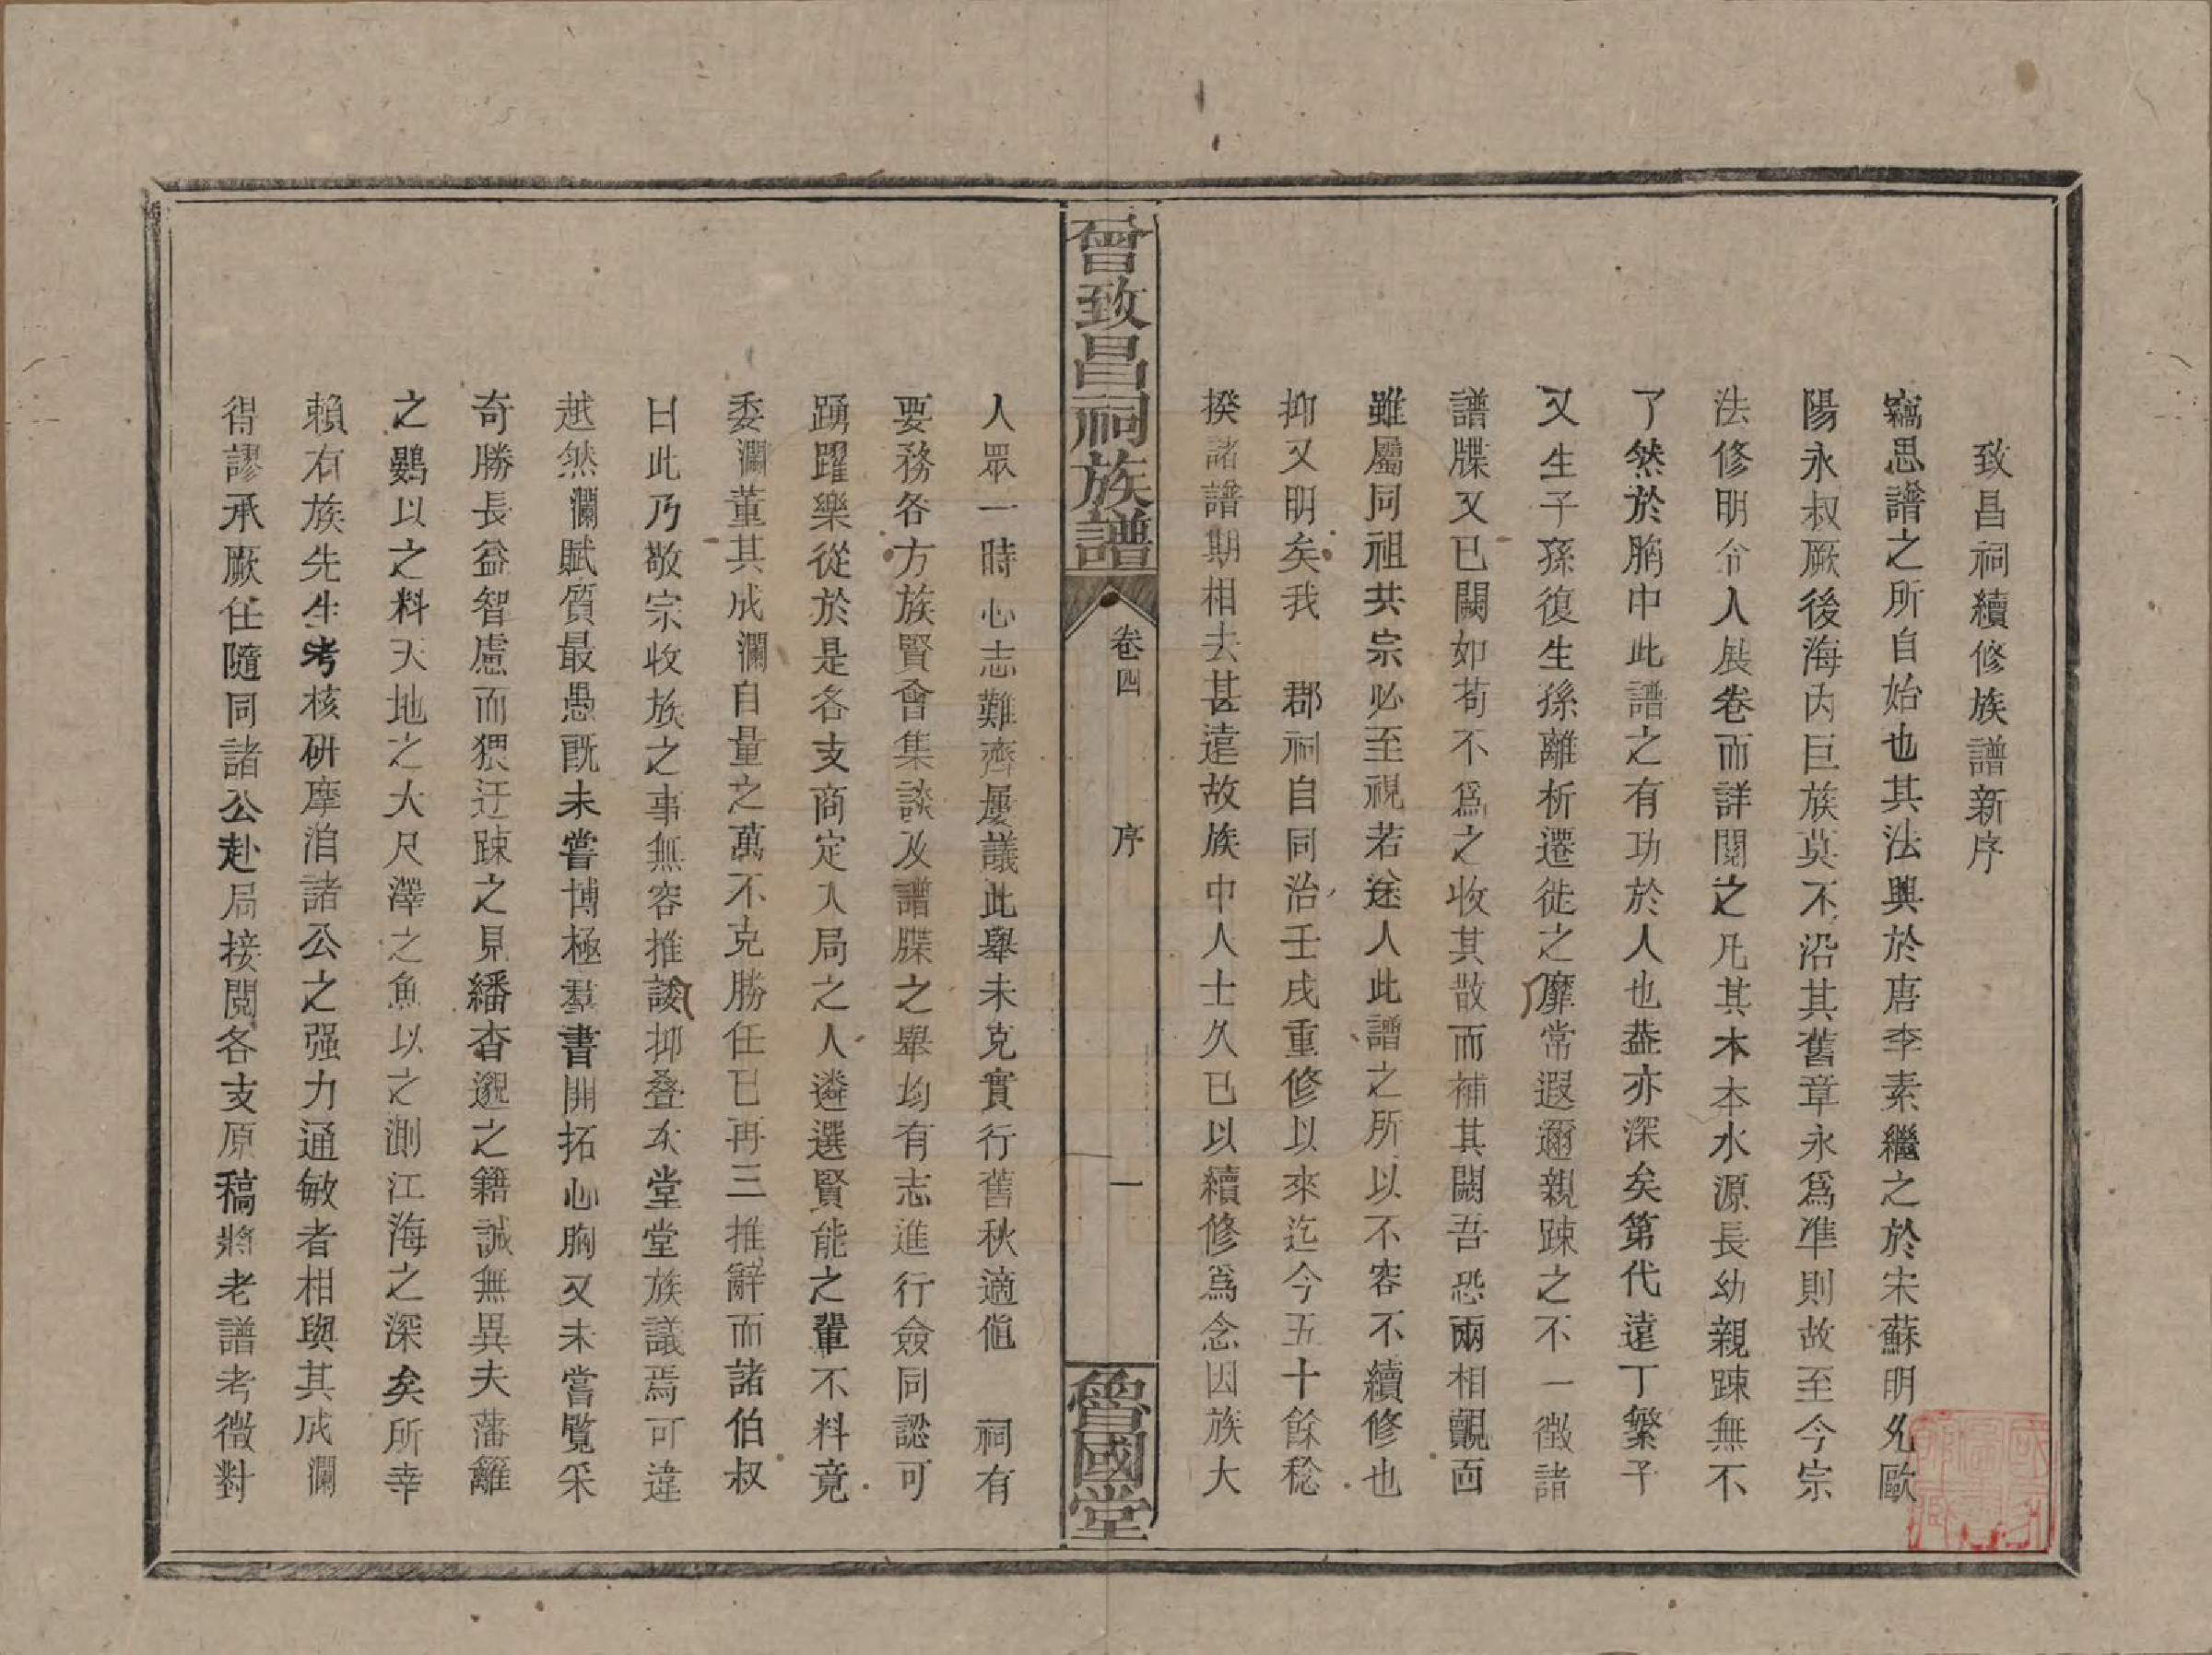 致昌祠續修族譜新序
竊思譜之所自始也其法興於唐李素繼之於宋蘇明允歐
陽永叔厥後海內巨族莫不沿其舊章永爲準則故至今宗
法修明令人展卷而詳閱之凡其木本水源長幼親踈無不
了然於胸中此譜之有功於人也葢亦深矣第代遠丁繁子
又生子孫復生孫離析遷徙之靡常遐邇親踈之不一徵諸
譜牒又已闕如苟不爲之收其散而補其闕吾恐兩相覿面
雖屬同祖共宗必至視若途人此譜之所以不容不續修也
抑又明矣我　郡祠自同治壬戌重修以來迄今五十餘稔
揆諸譜期相去甚遠故族中人士久已以續修爲念因族大
曾致昌祠族譜
卷四
序
一
魯國堂
人眾一時心志難齊屢議此舉未克實行舊秋適値　祠有
要務各方族賢會集談及譜牒之舉均有志進行僉同認可
踴躍樂從於是各支商定入局之人遴選賢能之輩不料竟
委瀾董其成瀾自量之萬不克勝任已再三推辭而諸伯叔
曰此乃敬宗收族之事無容推諉抑叠次堂堂族議焉可違
越然瀾賦質最愚旣未嘗博極羣書開拓心胸又未嘗覽采
奇勝長益智慮而猥迂踈之見繙杳邈之籍誠無異夫藩籬
之鷃以之料天地之大尺澤之魚以之測江海之深矣所幸
賴有族先生考核硏摩洎諸公之强力通敏者相與其成瀾
得謬承厥任隨同諸公赴局接閱各支原稿將老譜考徵對